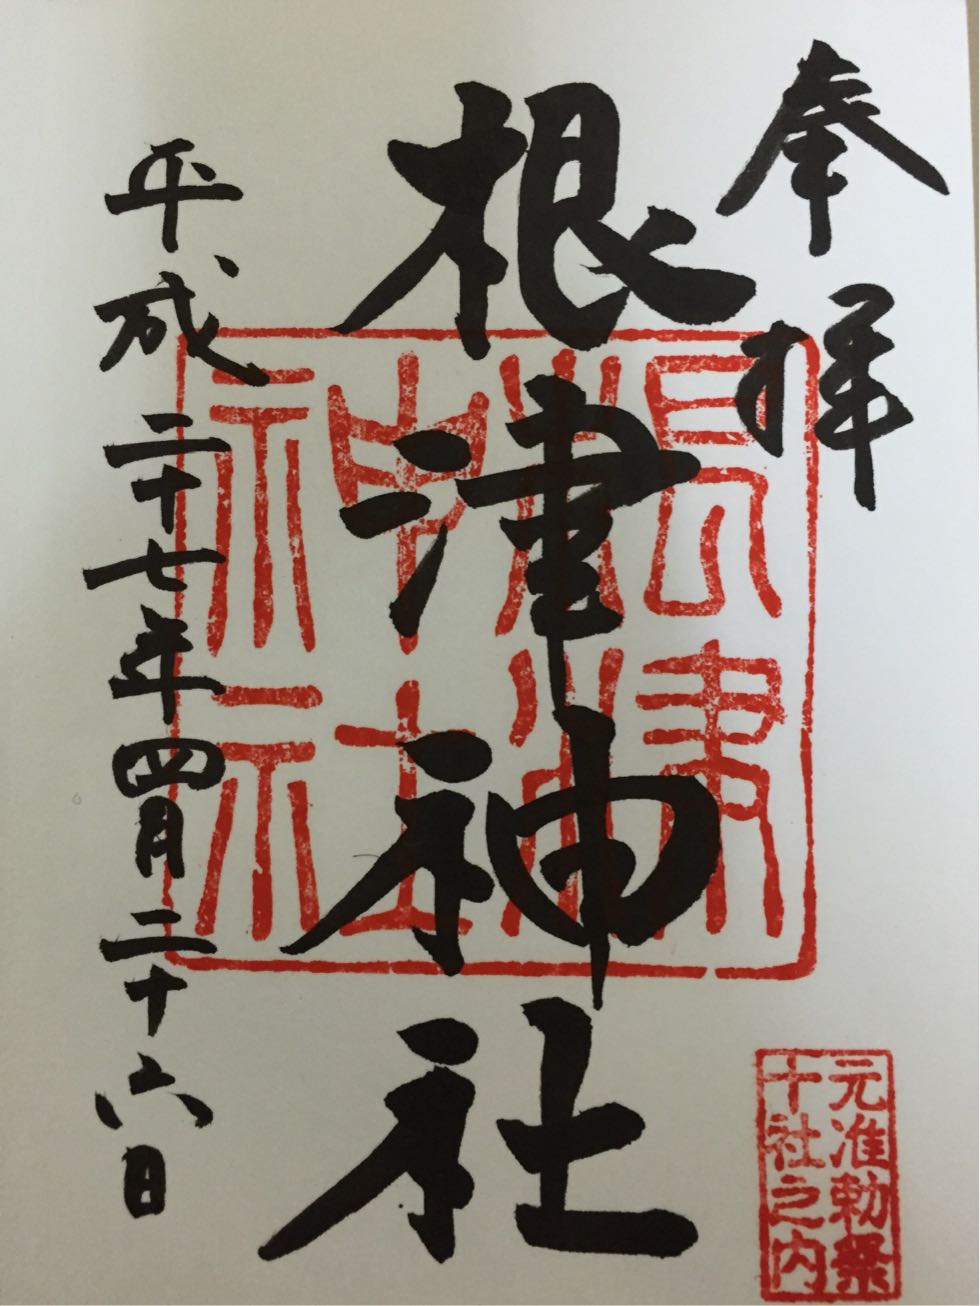 奉拝
根津神社
平成二十七年四月二十六日
根津神社
元准勅祭
十社之内